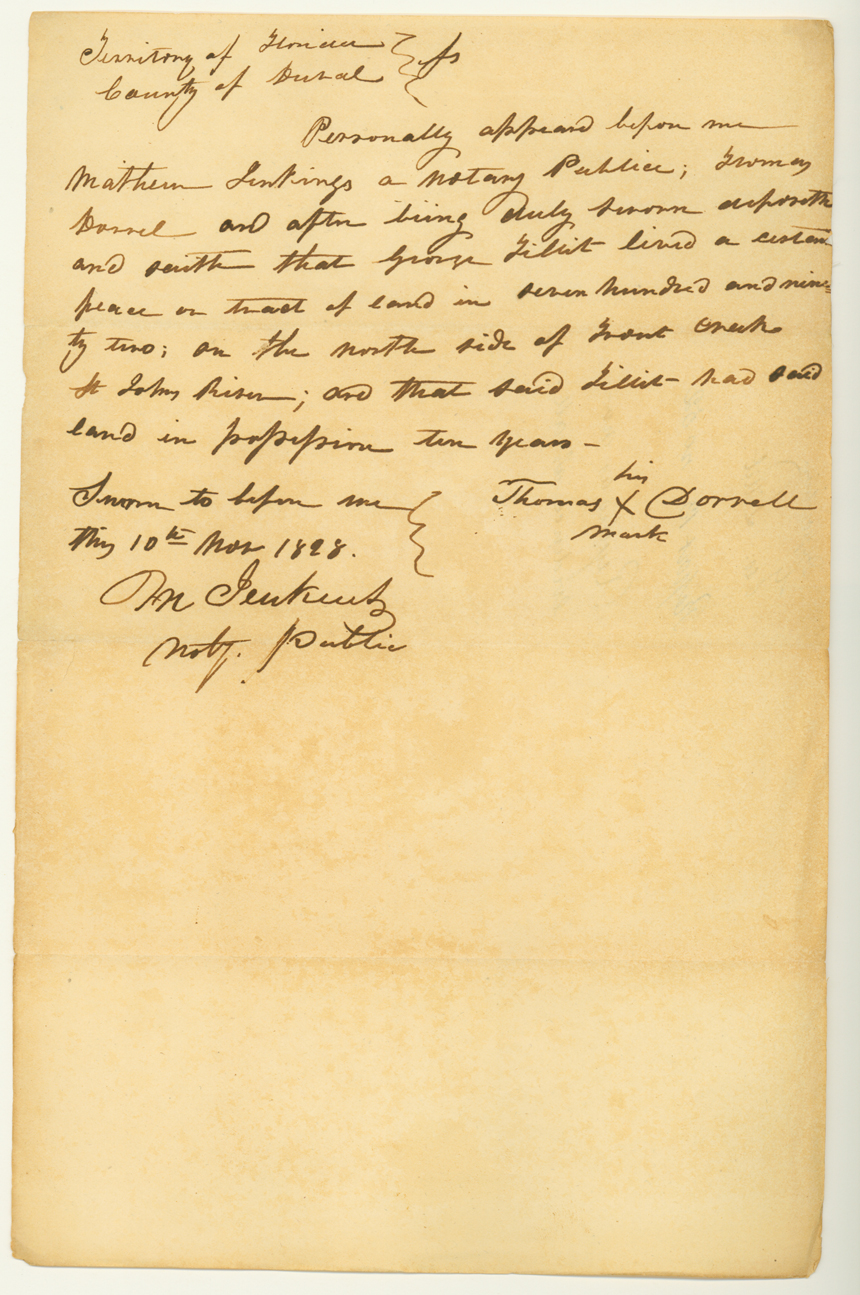 Territory of Florida } ss
County of Duval
Personally appeard before me
Mathew Jenkings a notary Publice; Thomas
Dorrel and after biing duly sworn deposeth
and saith that George Fillit lived a certan
peace or tract of land in seven hundred and nine=
ty two; on the north side of Trout Creek
St Johns River; and that said Fillit had said
land in possession ten years –
Sworn to before me } Thomas his X mark Dorrell
this 10th Nov 1828.
M Jenkins
Noty. Public